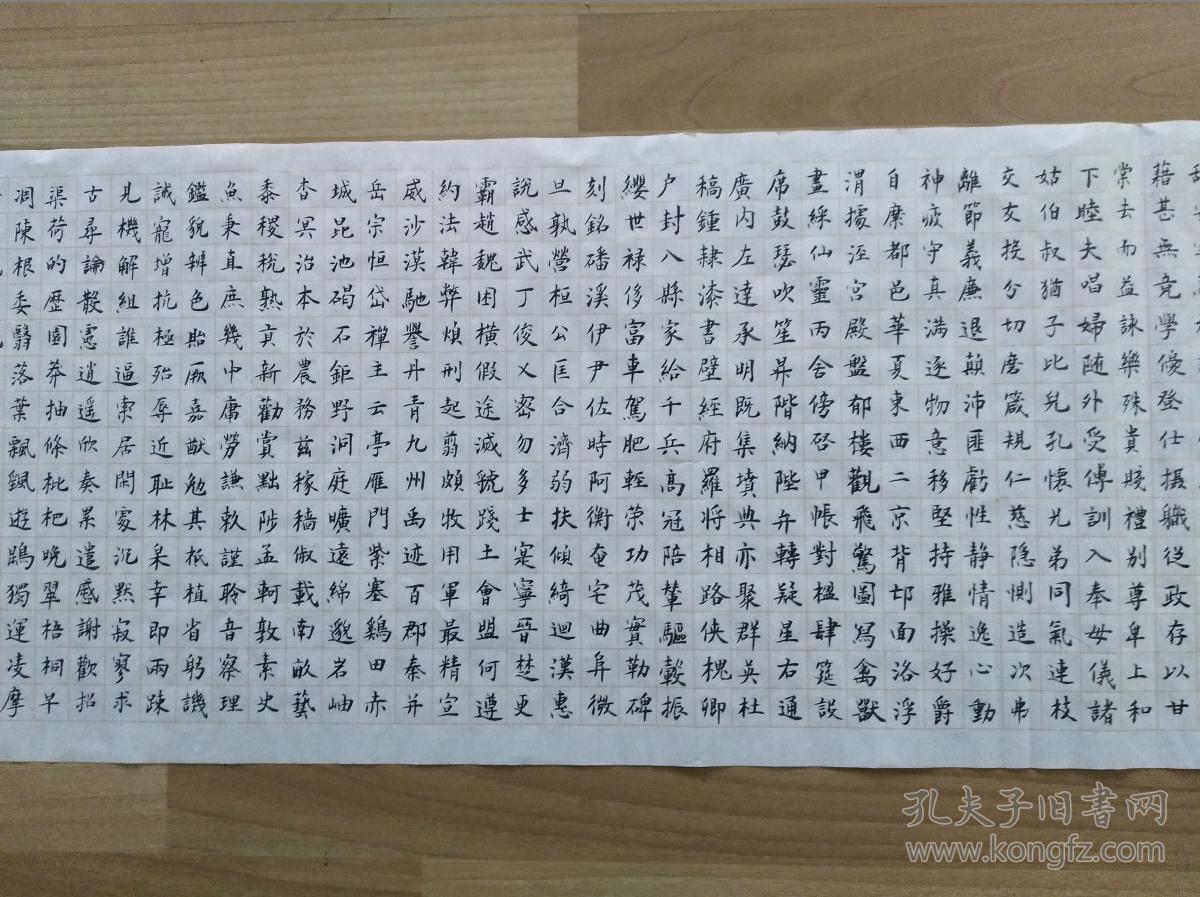 藉甚無竞學優登仕摄職從政存以甘
棠去而益詠樂殊貴賤禮別尊卑上和
下睦夫唱婦随外受傅訓入奉母儀諸
姑伯叔猶子比兒孔懷兄弟同氣連枝
交友投分切磨箴規仁慈隐惻造次弗
離節義廉退顛沛匪虧性静情逸心動
神疲守真满逐物意移堅持雅操好爵
自縻都邑華夏東西二京背邙面洛浮
渭據涇宫殿盤郁樓觀飛驚圖寫禽獸
畫綵仙靈丙舍傍啓甲帳對楹肆筵設
席鼓瑟吹笙昇階納陛弁轉疑星右通
廣内左達承明既集墳典亦聚群英杜
稿鍾隸漆書壁經府羅將相路俠槐卿
户封八縣家給千兵高冠陪輦驅轂振
纓世禄侈富車駕肥輕策功茂實勒碑
刻銘磻溪伊尹佐時阿衡奄宅曲阜微
旦孰營桓公匡合濟弱扶傾綺迴漢惠
說感武丁俊乂密勿多士寔寧晉楚更
霸趙魏困横假途滅虢踐土會盟何遵
約法韓弊煩刑起翦頗牧用軍最精宣
威沙漠馳譽丹青九州禹迹百郡秦并
岳宗恒岱禪主云亭雁門紫塞鷄田赤
城昆池碣石鉅野洞庭曠遠綿邈岩岫
杳冥治本於農務兹稼穡俶載南畝藝
黍稷税熟貢新勸賞黜陟孟軻敦素史
魚秉直庶幾中庸勞謙敕謹聆音察理
鑑貌辨色貽厥嘉猷勉其祗植省躬譏
誡寵增抗極殆辱近耻林皋幸即兩疎
見機解組誰逼索居閑處沉默寂寥求
古尋論散慮逍遥欣奏累遣感謝歡招
渠荷的歷園莽抽條枇杷晚翠梧桐早
凋陳根委翳落葉飄飖遊鵾獨運凌摩
孔夫子旧书网
www.kongfz.com